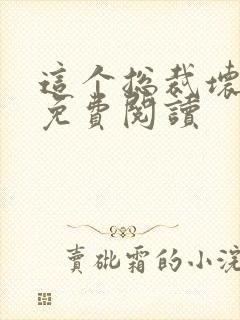 這个总裁壞
免費閱讀
賣砒霜的小浣